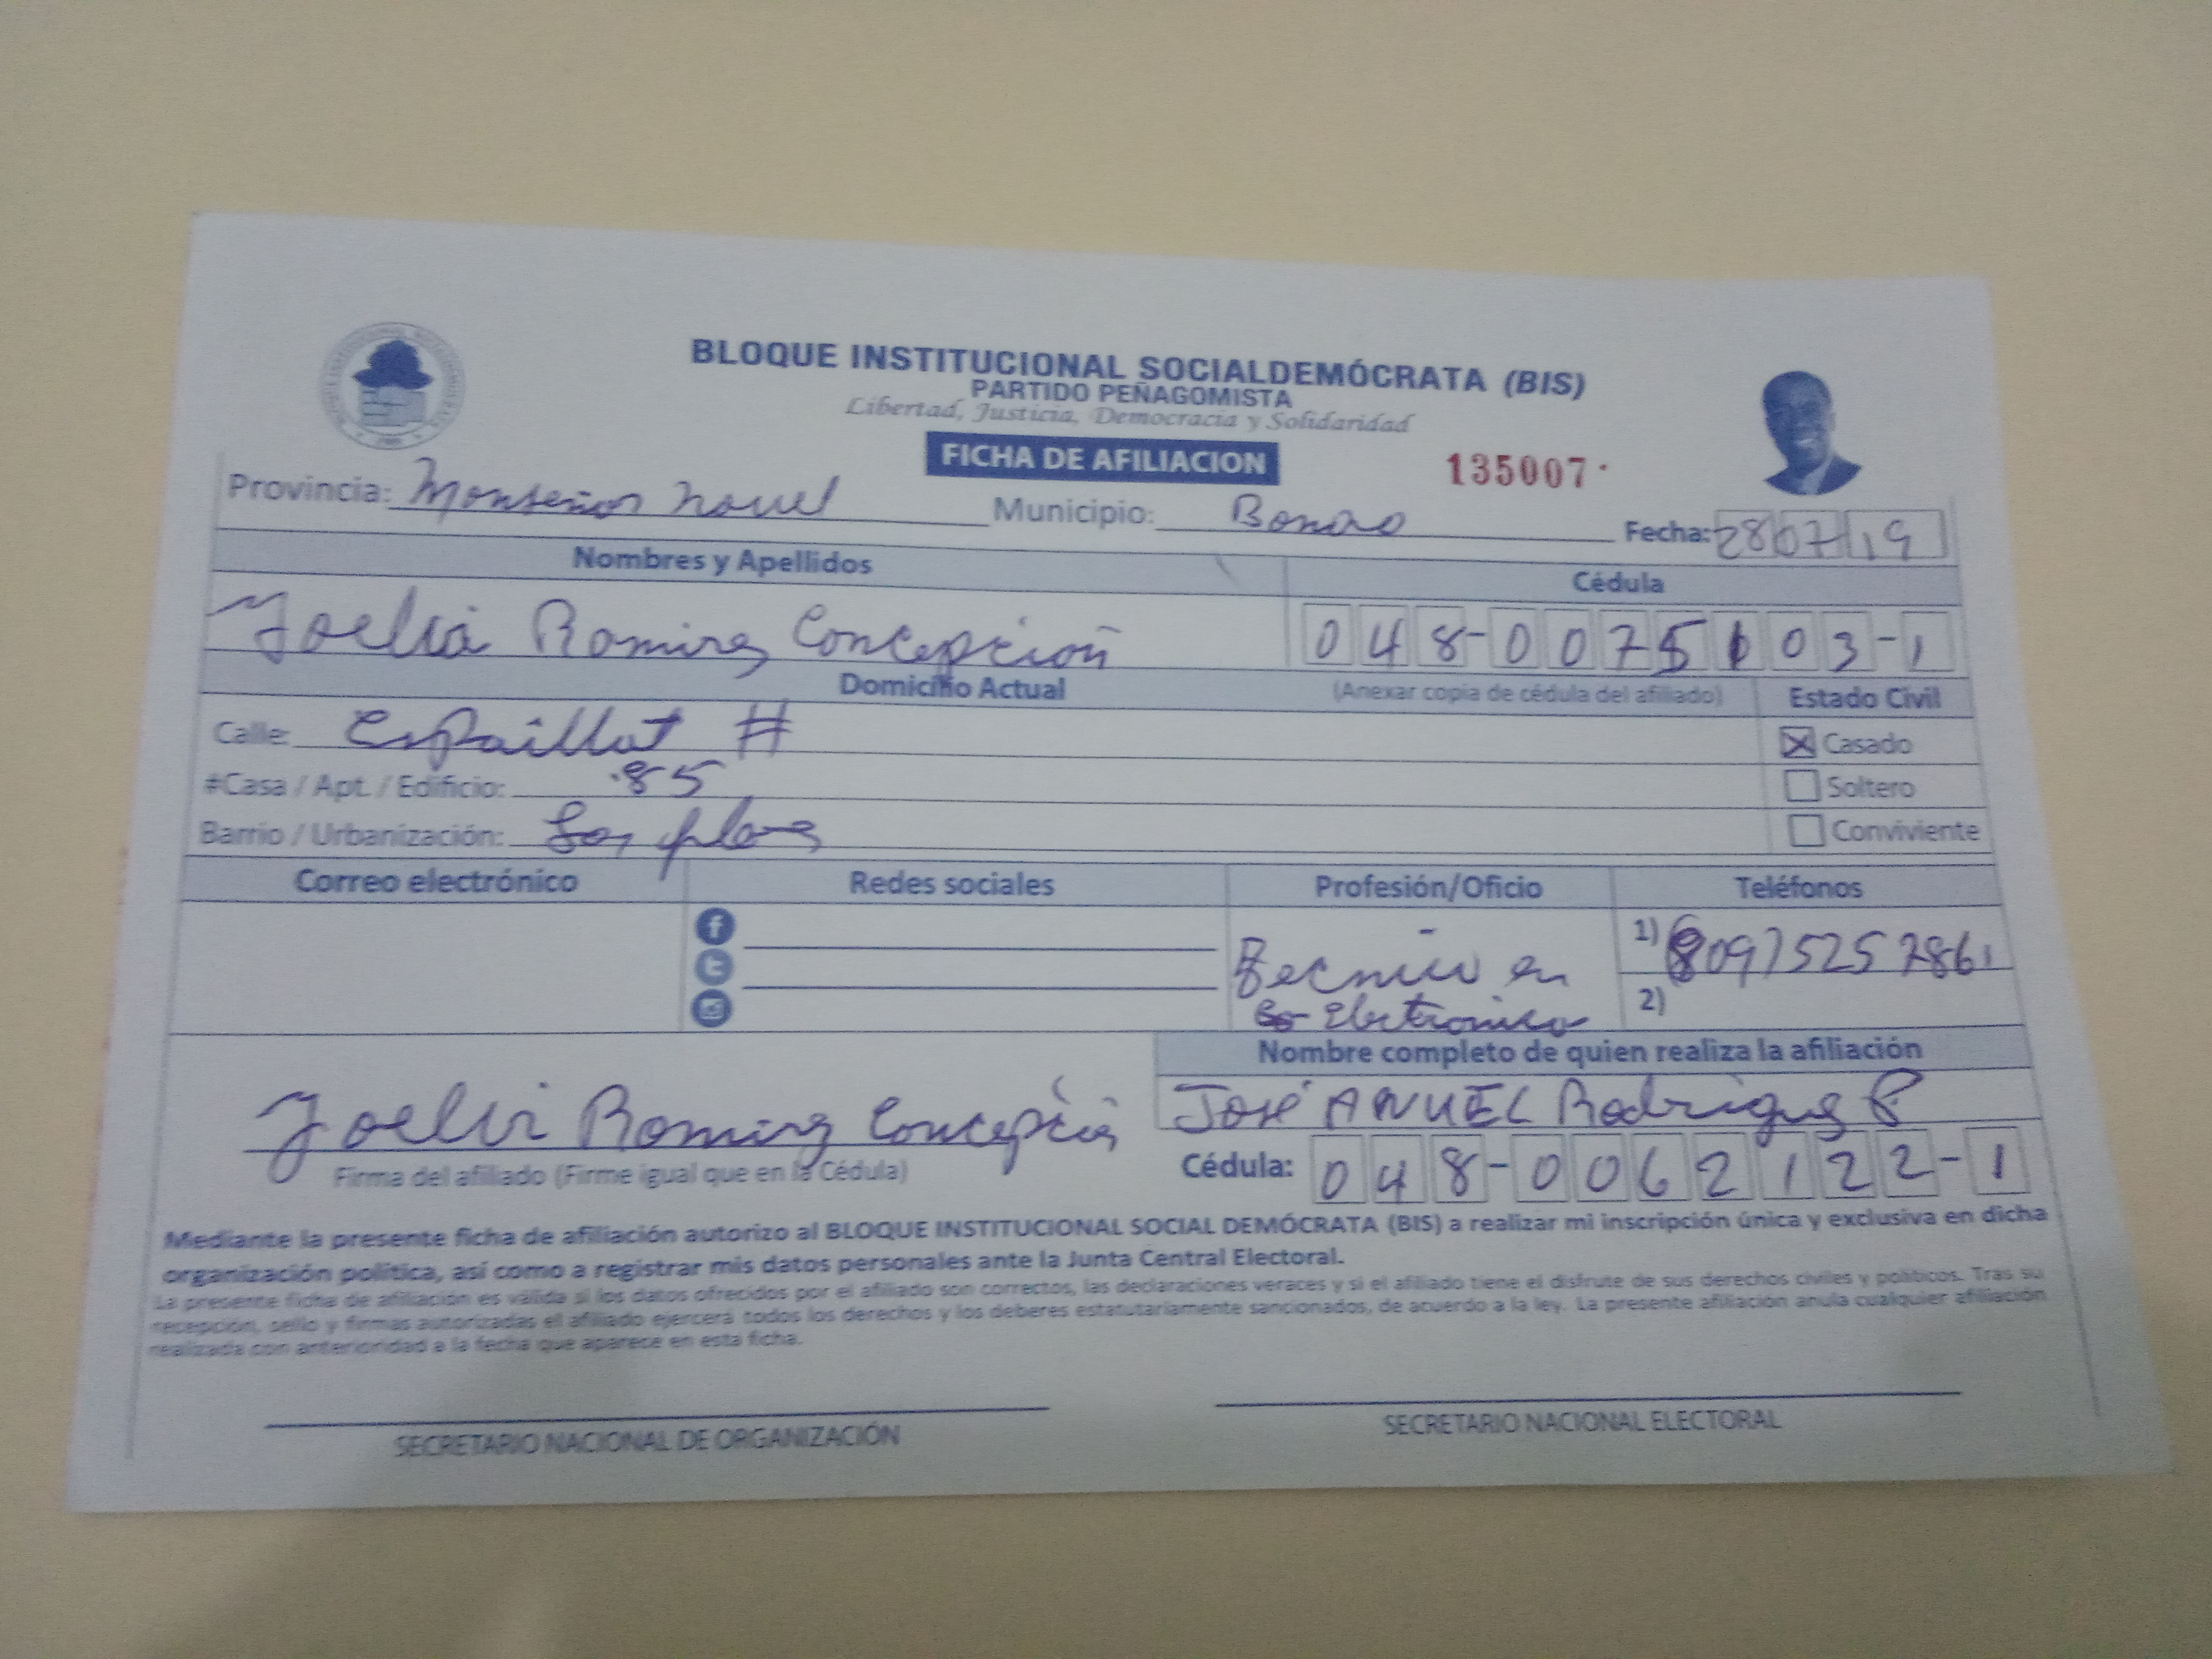 BLOQUE INSTITUCIONAL SOCIALDEMÓCRATA (BIS)
PARTIDO PEÑAGOMISTA
Libertad, Justicia, Democracia y Solidaridad
FICHA DE AFILIACION
135007
Provincia: Monseñor Nouel Municipio: Bonao Fecha: 28 07 19
Nombres y Apellidos Cédula
Ramirez Concepción 048-0075103-1
Domicilio Actual (Anexar copia de cédula del afiliado) Estado Civil
Calle: Espaillat # Casado
#Casa / Apt. / Edificio: 85 Soltero
Barrio / Urbanización: Conviviente
Correo electrónico Redes sociales Profesión/Oficio Teléfonos
Tecnico en 1) 809 525 2861
Electronica 2)
Nombre completo de quien realiza la afiliación
Ramirez Concepción José ANUEL Rodriguez P
Firma del afiliado (Firme igual que en la Cédula) Cédula: 048-0062122-1
Mediante la presente ficha de afiliación autorizo al BLOQUE INSTITUCIONAL SOCIAL DEMÓCRATA (BIS) a realizar mi inscripción única y exclusiva en dicha
organización política, así como a registrar mis datos personales ante la Junta Central Electoral.
La presente ficha de afiliación es válida si los datos ofrecidos por el afiliado son correctos, las declaraciones veraces y si el afiliado tiene el disfrute de sus derechos civiles y políticos. Tras su
recepción, sello y firmas autorizadas el afiliado ejercerá todos los derechos y los deberes estatutariamente sancionados, de acuerdo a la ley. La presente afiliación anula cualquier afiliación
realizada con anterioridad a la fecha que aparece en esta ficha.
SECRETARIO NACIONAL DE ORGANIZACIÓN SECRETARIO NACIONAL ELECTORAL